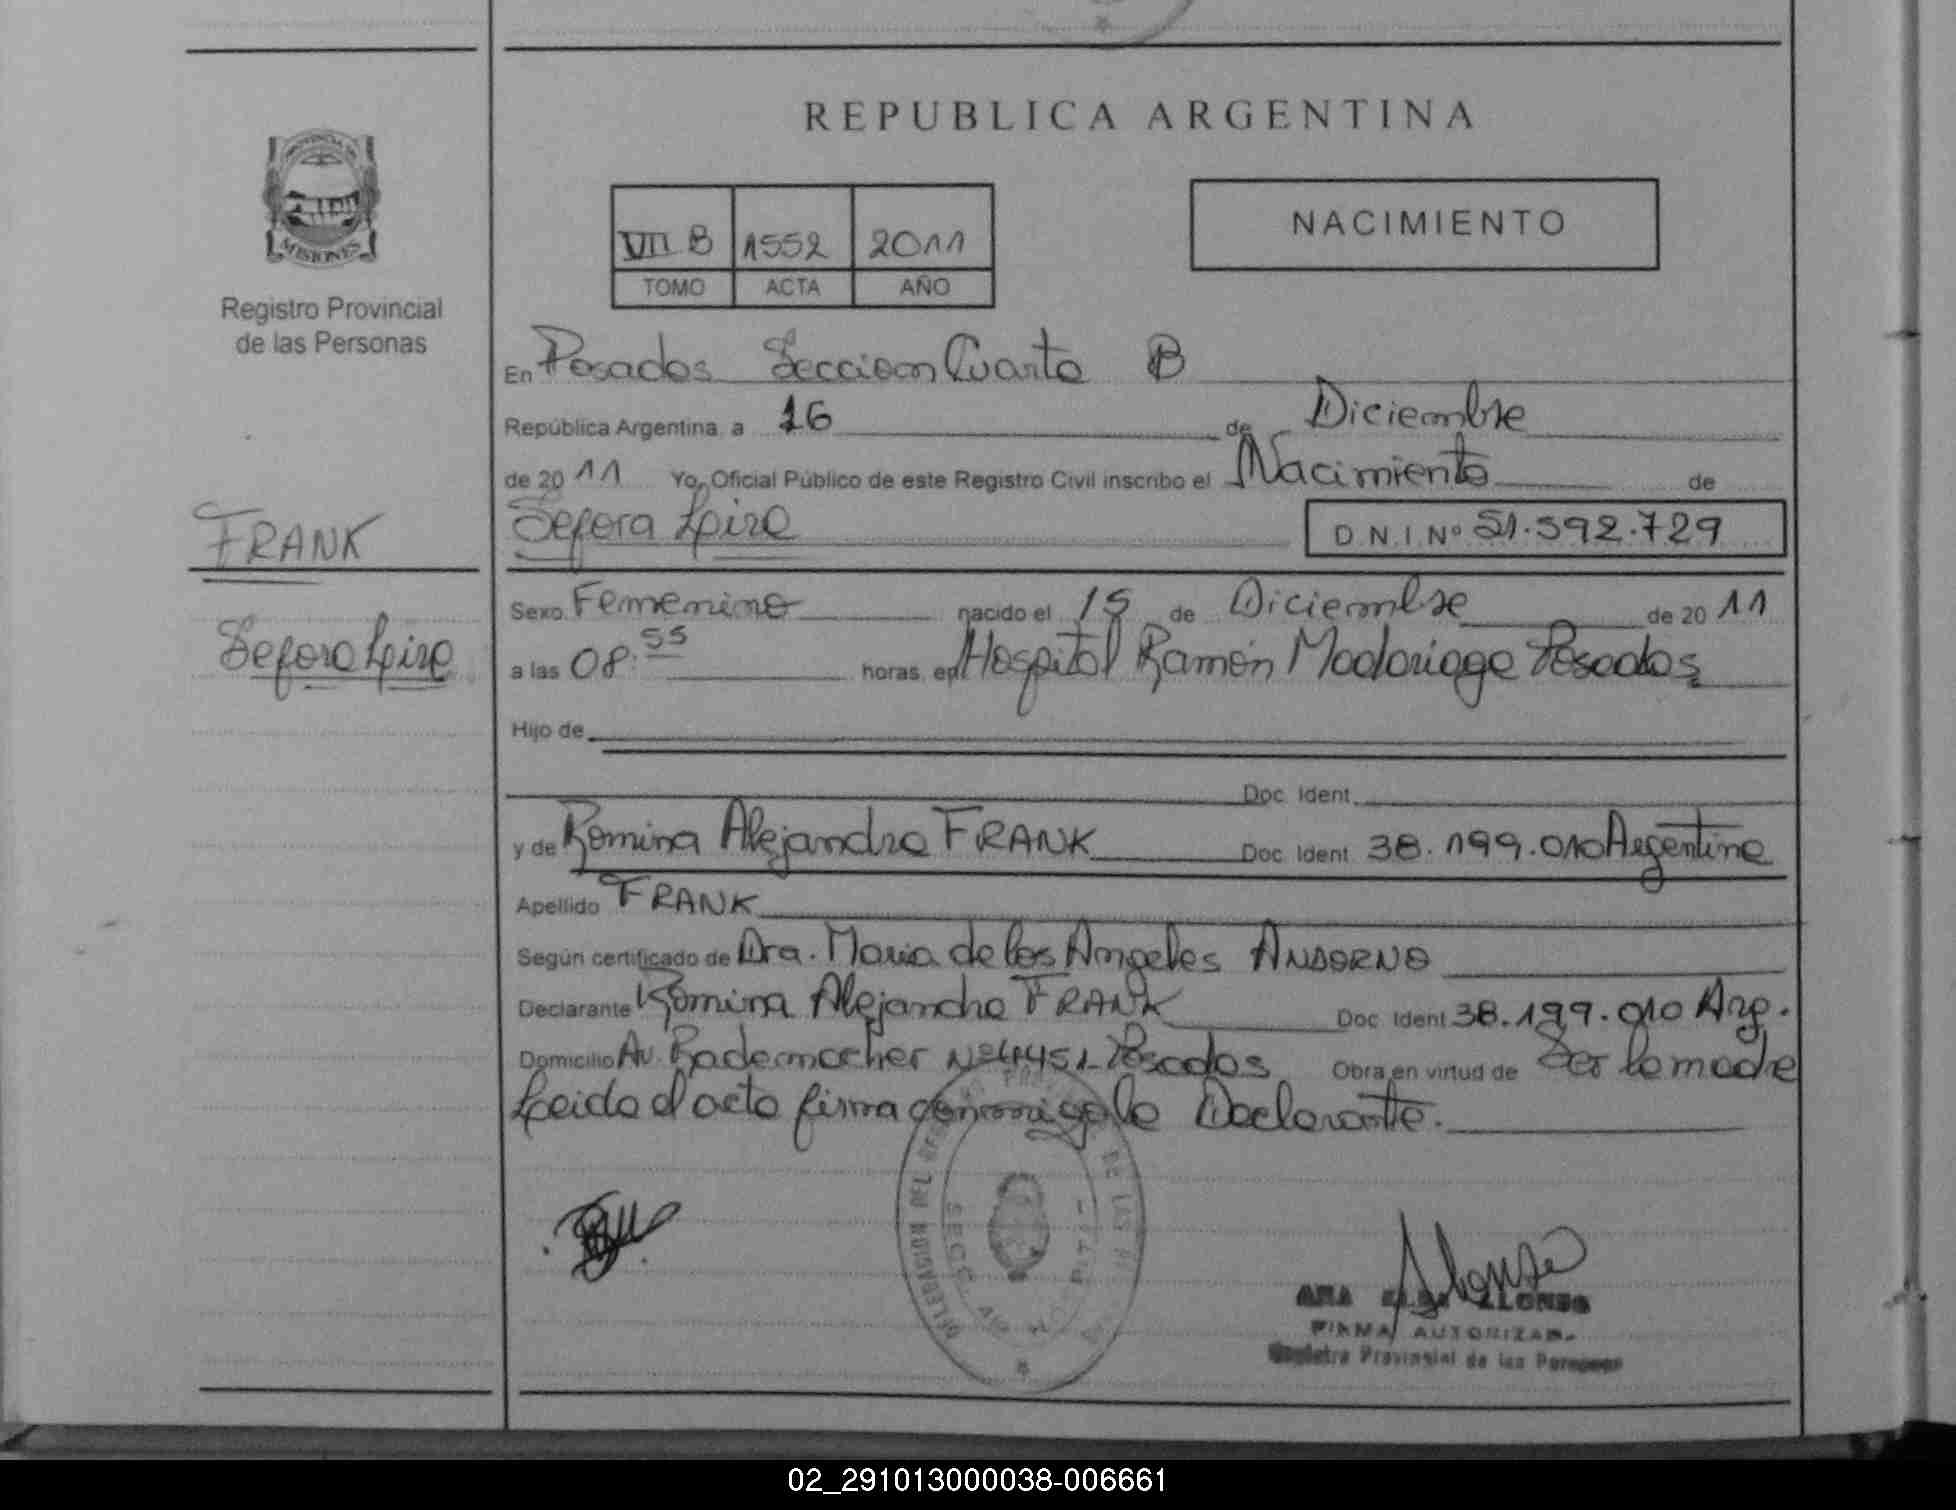 REPUBLICA ARGENTINA
PROVINCIA DE
MISIONES
Registro Provincial
de las Personas
VII B 1552 2011
TOMO ACTA AÑO
NACIMIENTO
En Posadas Seccion Cuarta B
República Argentina, a 16 de Diciembre
de 2011 Yo, Oficial Público de este Registro Civil inscribo el Nacimiento de
FRANK
Sefora D.N.I. Nº 51.592.729
Sefora
Sexo Femenino nacido el 15 de Diciembre de 2011
a las 08:55 horas, en Hospital Ramón Madariaga Posadas
Hijo de
Doc. Ident.
y de Romina Alejandra FRANK Doc. Ident. 38.199.010 Argentina
Apellido FRANK
Según certificado de Dra. Maria de los Angeles ANDORNO
Declarante Romina Alejandra FRANK Doc. Ident 38.199.010 Arg.
Domicilio Av. Rademacher Nº 4451 Posadas Obra en virtud de Ser la madre
Leida el acta firma conmigo la Declarante.
DELEGACION DEL DE LAS
SECC.
Alonso
ANA ALONSO
FIRMA AUTORIZADA
Registro Provincial de las Personas
02_291013000038-006661